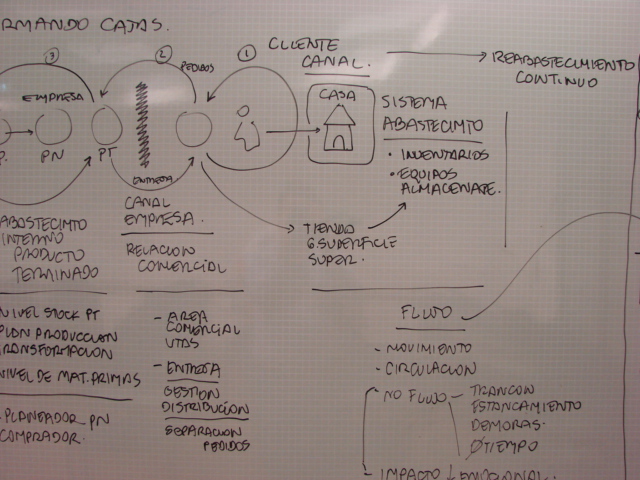 RMANDO CAJAS.
③
②
①
CLIENTE
CANAL.
REABASTECIMIENTO
CONTINUO
PEDIDOS
EMPRESA
P.
PN
PT
ENTREGA
CASA
SISTEMA
ABASTECIMTO
• INVENTARIOS
• EQUIPOS
ALMACENATE.
ABASTECIMTO
INTERNO
PRODUCTO
TERMINADO
CANAL
EMPRESA.
RELACION
COMERCIAL
TIENDA
G SUPERFICIE
SUPER.
NIVEL STOCK PT
PLAN PRODUCCION
TRANSFORMACION
NIVEL DE MAT. PRIMAS
PLANEADOR PN
COMPRADOR.
- AREA
COMERCIAL
VTAS
- ENTREGA
GESTION
DISTRIBUCIÓN
SEPARACION
PEDIDOS
FLUJO
- MOVIMIENTO
- CIRCULACION
- NO FLUJO - TRANCON
ESTANCAMIENTO
DEMORAS.
∅TIEMPO
- IMPACTO ↓ EMOCIONAL.